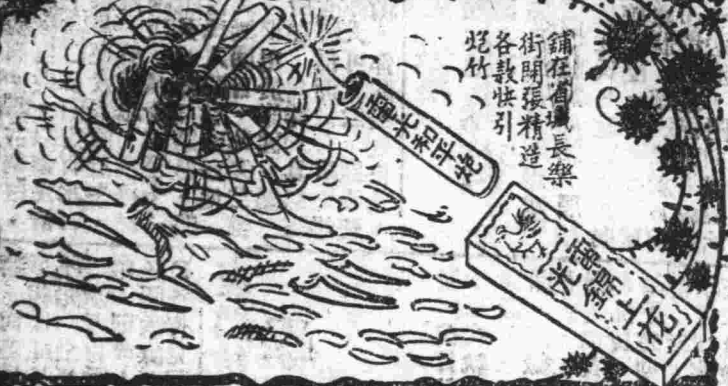 舖在省城長樂
街開張精造
各欵快引
炮竹
電光和平炮
電光
錦上花